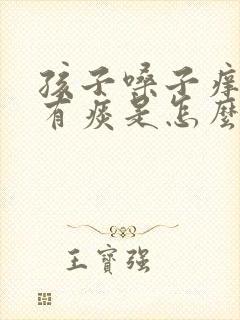 孩子嗓子痒
有痰是怎麽
王寳强